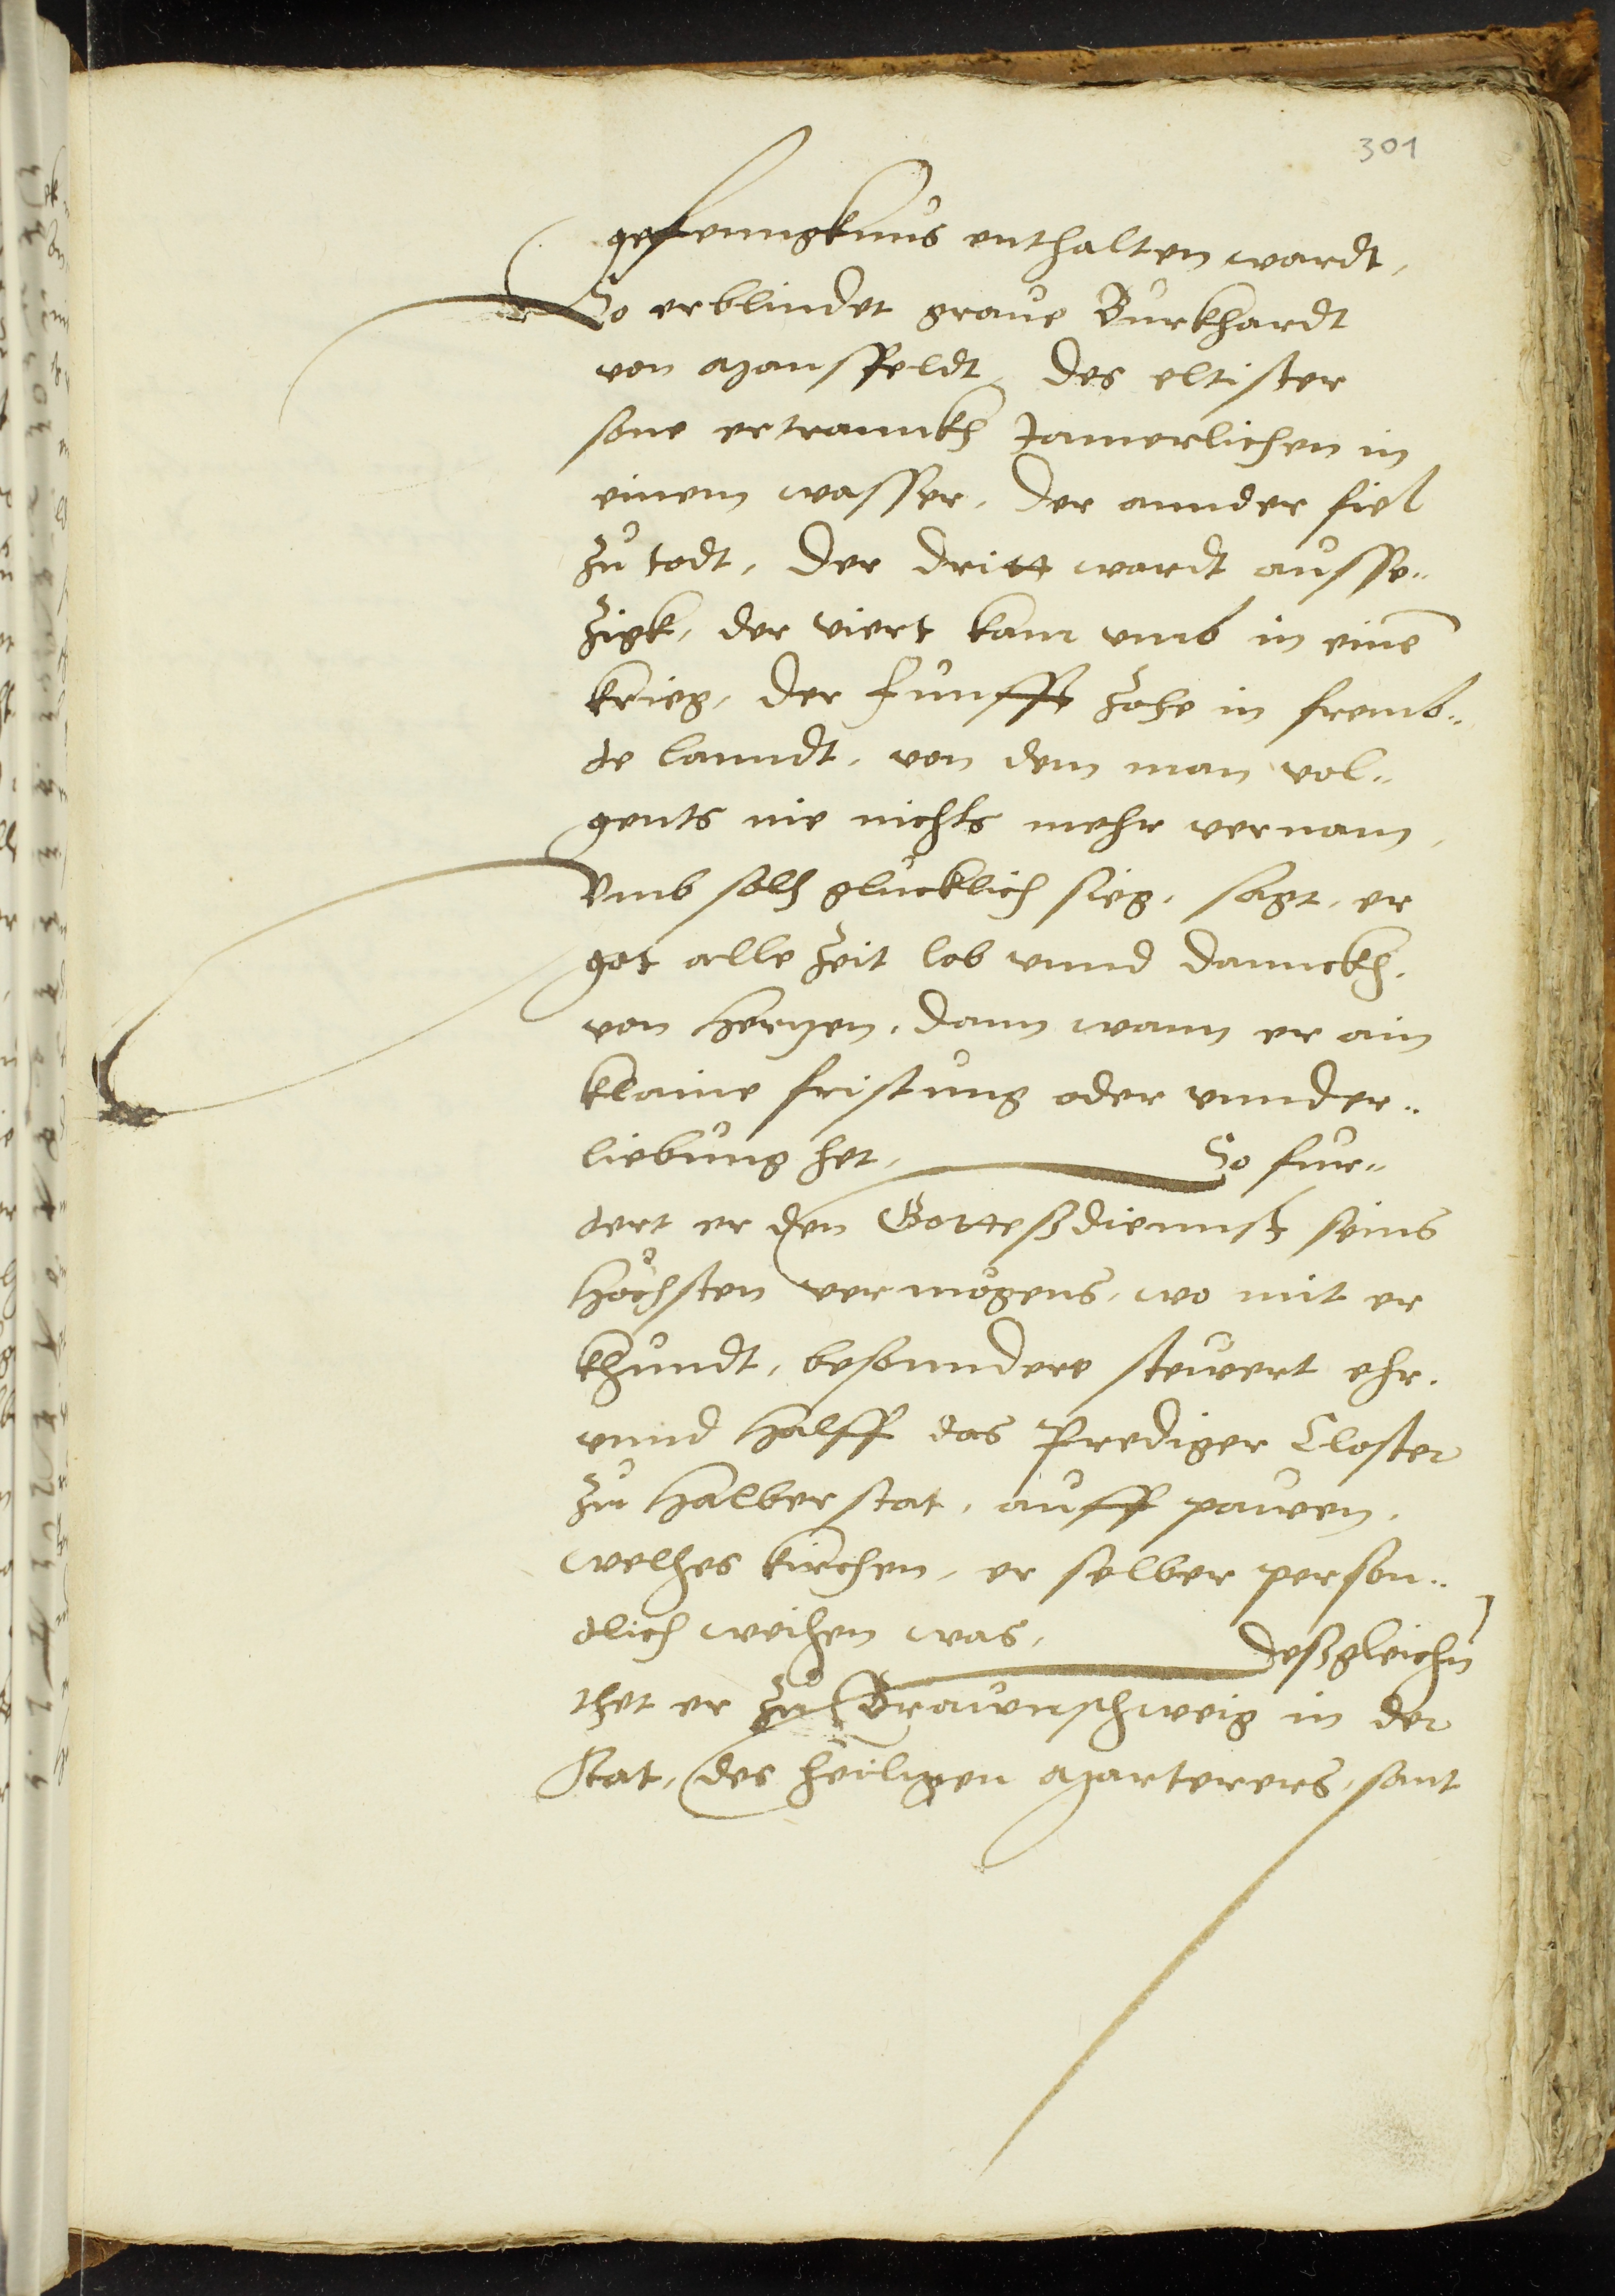 301
gefenngknus enthalten wardt,
So erblindet graue Burkhardt
von Mansffeldt, des eltister
sone ertrannkh Jamerlichen in
einem wasser, der annder fiel
zu todt, der dritt wardt ausse-
zigk, der viert kam vmb in eine
krieg, der funfft zohe in fremb-
de lanndt, von dem man vol-
gents nie nichts mehr vernam,
Vmb solh glucklich sieg, sagt, er
got alle zeit lob vnnd dannckh,
von hertzen, dann wann er ain
klaine fristung oder vnnder-
liebung het, So fur-
dert er den Gotteßdiennst seins
höchsten vermögens, wo mit er
khundt, besonndere stewert ehr,
vnnd halff das Prediger Closter
zu Halberstat, auff pawen,
welhes kirchen, er selber person-
dlich weihen was, Deßgleichn
thet er zu Braunschweig in der
Stat, des heiligen Marterers, sant